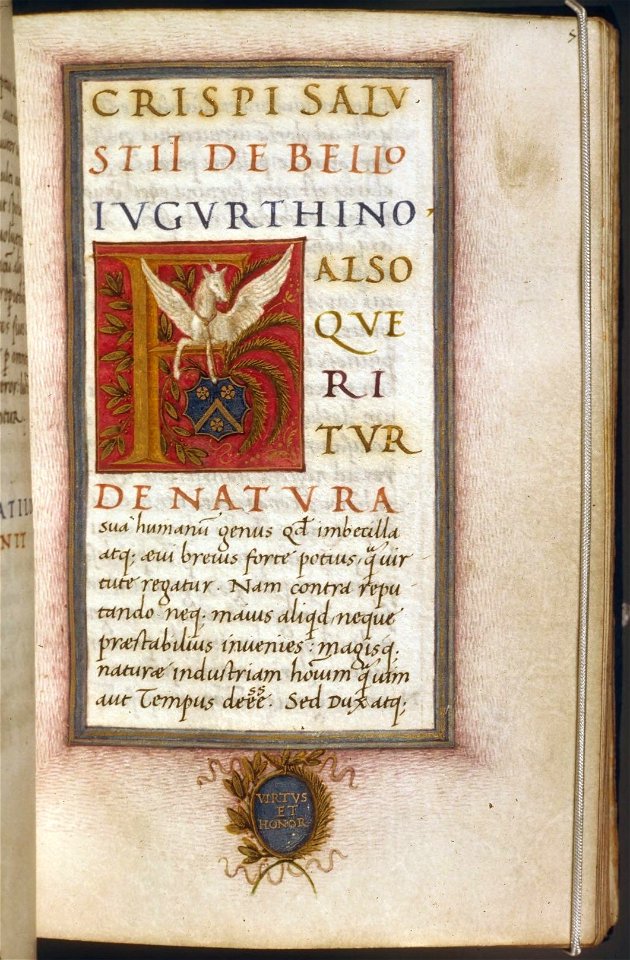 CRISPI SALV
STII DE BELLO
IVGVRTHINO
FALSO
QVE
RI
TVR
DE NATVRA
sua humanū genus qd imbecilla
atq; aevi brevis forte potius, q̄ vir
tute regatur. Nam contra repu
tando neq. maius aliqd neque
præstabilius invenies: magisq.
naturæ industriam hoīum q̄ vim
aut Tempus deesse. Sed Dux atq;
VIRTVS
ET
HONOR